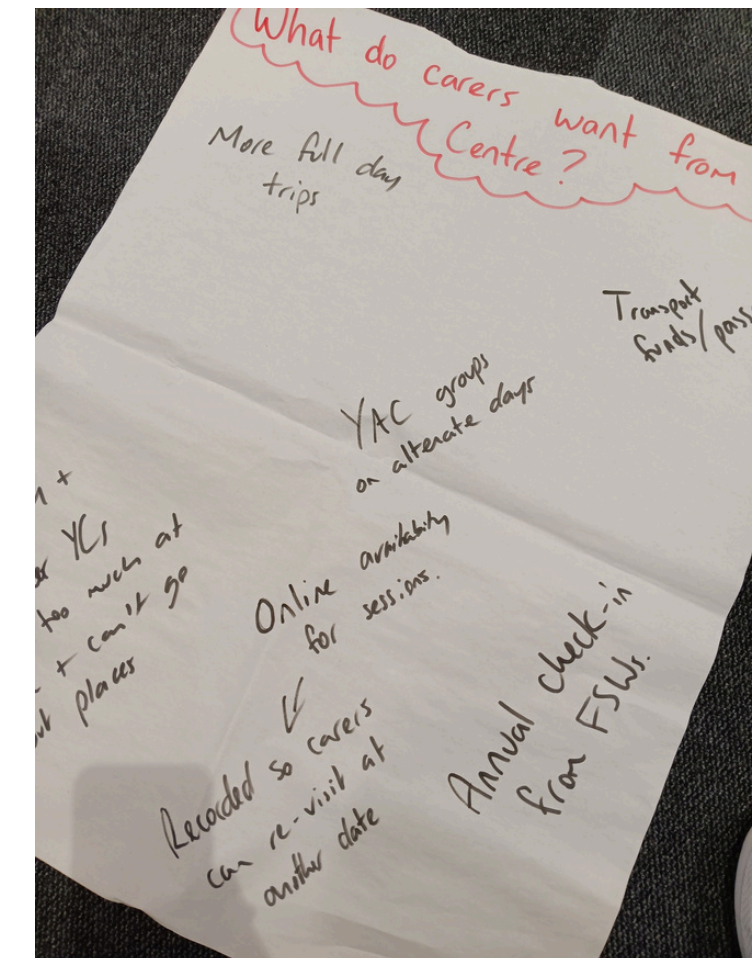 What do carers want from
Centre?
More full day
trips
Transport
funds/
YAC groups
on alternate days
YCs
too much at
+ can't go
places
Online availability
for sessions.
Recorded so carers
can re-visit at
another date
Annual check-in
from FSWs.